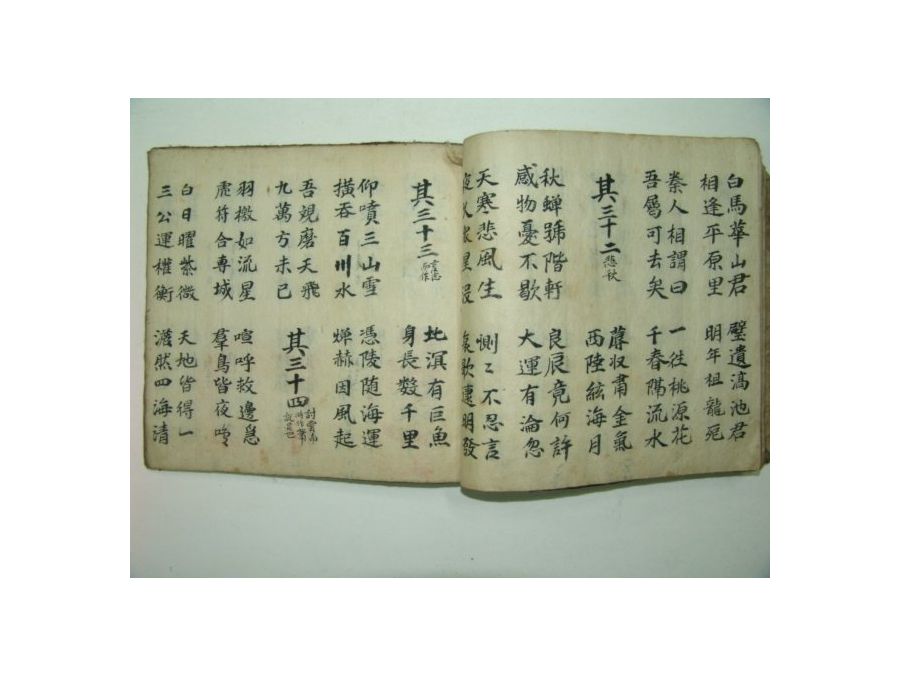 白馬華山君
相逢平原里
璧遺滈池君
明年祖龍死
秦人相謂曰
吾屬可去矣
一往桃源花
千春隔流水
其三十二 悲秋
蓐收肅金氣
西陸絃海月
秋蟬號階軒
感物憂不歇
良辰竟何許
大運有淪忽
天寒悲風生
夜久衆星沒
惻〻不忍言
哀歌達明發
其三十三
北溟有巨魚
身長數千里
仰噴三山雪
橫吞百川水
憑陵隨海運
燀赫因風起
吾覌磨天飛
九萬方未已
其三十四
羽檄如流星
虎符合專城
喧呼救邊急
羣鳥皆夜鳴
白日曜紫微
三公運權衡
天地皆得一
澹然四海清